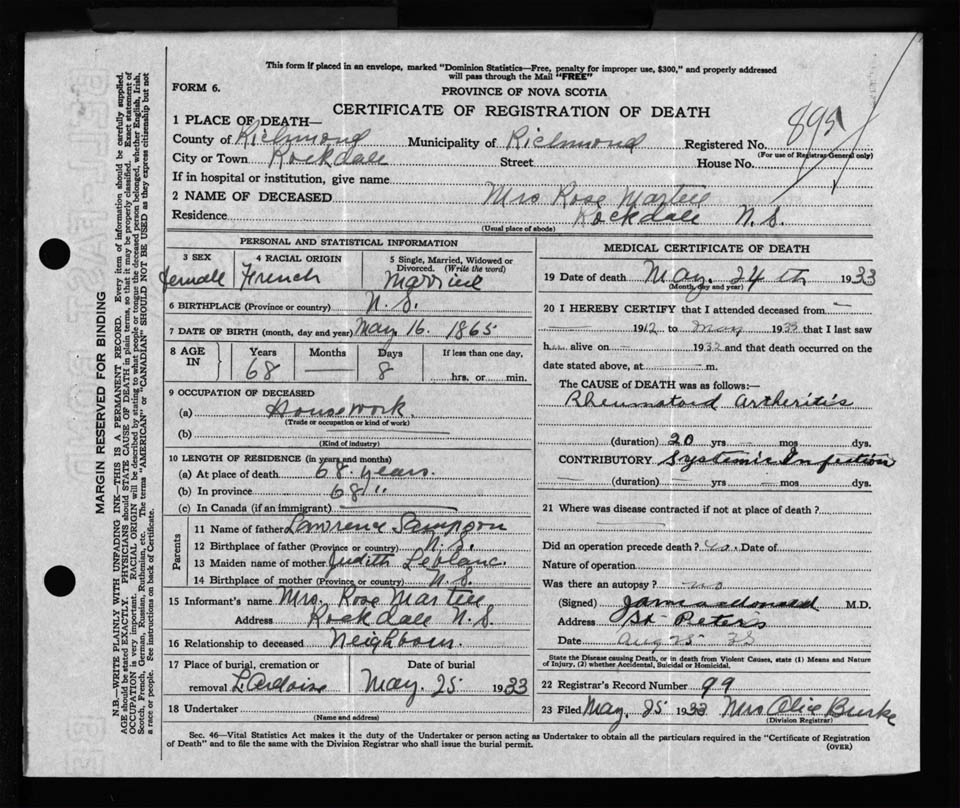 This form if placed in an envelope, marked "Dominion Statistics—Free, penalty for improper use, $300," and properly addressed
will pass through the Mail "FREE"
FORM 6.
PROVINCE OF NOVA SCOTIA
CERTIFICATE OF REGISTRATION OF DEATH
895
1 PLACE OF DEATH—
County of Richmond Municipality of Richmond Registered No.
(For use of Registrar General only)
City or Town Rockdale Street House No.
If in hospital or institution, give name
2 NAME OF DECEASED Mrs Rose Martell
Residence Rockdale N.S.
(Usual place of abode)
PERSONAL AND STATISTICAL INFORMATION
3 SEX 4 RACIAL ORIGIN 5 Single, Married, Widowed or
Divorced. (Write the word)
Femall French Married
6 BIRTHPLACE (Province or country) N.S.
7 DATE OF BIRTH (month, day and year) May. 16. 1865
8 AGE IN Years Months Days If less than one day,
68 — 8 hrs. or min.
9 OCCUPATION OF DECEASED
(a) Housework.
(Trade or occupation or kind of work)
(b)
(Kind of industry)
10 LENGTH OF RESIDENCE (in years and months)
(a) At place of death 68 years.
(b) In province 68 "
(c) In Canada (if an immigrant)
Parents
11 Name of father Lawrence Sampson
12 Birthplace of father (Province or country) N.S.
13 Maiden name of mother Judith Leblanc.
14 Birthplace of mother (Province or country) N.S.
15 Informant's name Mrs. Rose Martell
Address Rockdale N.S.
16 Relationship to deceased Neighbour.
17 Place of burial, cremation or Date of burial
removal L'Ardoise May. 25 1933
18 Undertaker
(Name and address)
MEDICAL CERTIFICATE OF DEATH
19 Date of death May. 24th 1933
(Month, day and year)
20 I HEREBY CERTIFY that I attended deceased from —
— 1912 to May 1933 that I last saw
h alive on — 1933 and that death occurred on the
date stated above, at — m.
The CAUSE of DEATH was as follows:—
Rheumatoid artheritis
(duration) 20 yrs — mos dys.
CONTRIBUTORY Systemic Infection
(duration) — yrs — mos — dys.
21 Where was disease contracted if not at place of death?
Did an operation precede death? no. Date of
Nature of operation
Was there an autopsy? no
(Signed) M.D.
Address St. Peters
Date Aug 25
State the Disease causing Death, or in death from Violent Causes, state (1) Means and Nature
of Injury, (2) whether Accidental, Suicidal or Homicidal.
22 Registrar's Record Number 99
23 Filed May, 25 1933 Mrs Alice Burke
(Division Registrar)
Sec. 46—Vital Statistics Act makes it the duty of the Undertaker or person acting as Undertaker to obtain all the particulars required in the "Certificate of Registration
of Death" and to file the same with the Division Registrar who shall issue the burial permit.
(OVER)
MARGIN RESERVED FOR BINDING
N.B.—WRITE PLAINLY WITH UNFADING INK—THIS IS A PERMANENT RECORD. Every item of information should be carefully supplied.
AGE should be stated EXACTLY. PHYSICIANS should STATE CAUSE OF DEATH in plain terms, so that it may be properly classified. Exact statement of
OCCUPATION is very important. RACIAL ORIGIN will be described by stating to what people or tongue the deceased person belonged, whether English, Irish,
Scotch, French, German, Russian, Ruthenian, etc. The terms "AMERICAN" or "CANADIAN" SHOULD NOT BE USED as they express citizenship but not
a race or people. See instructions on back of Certificate.